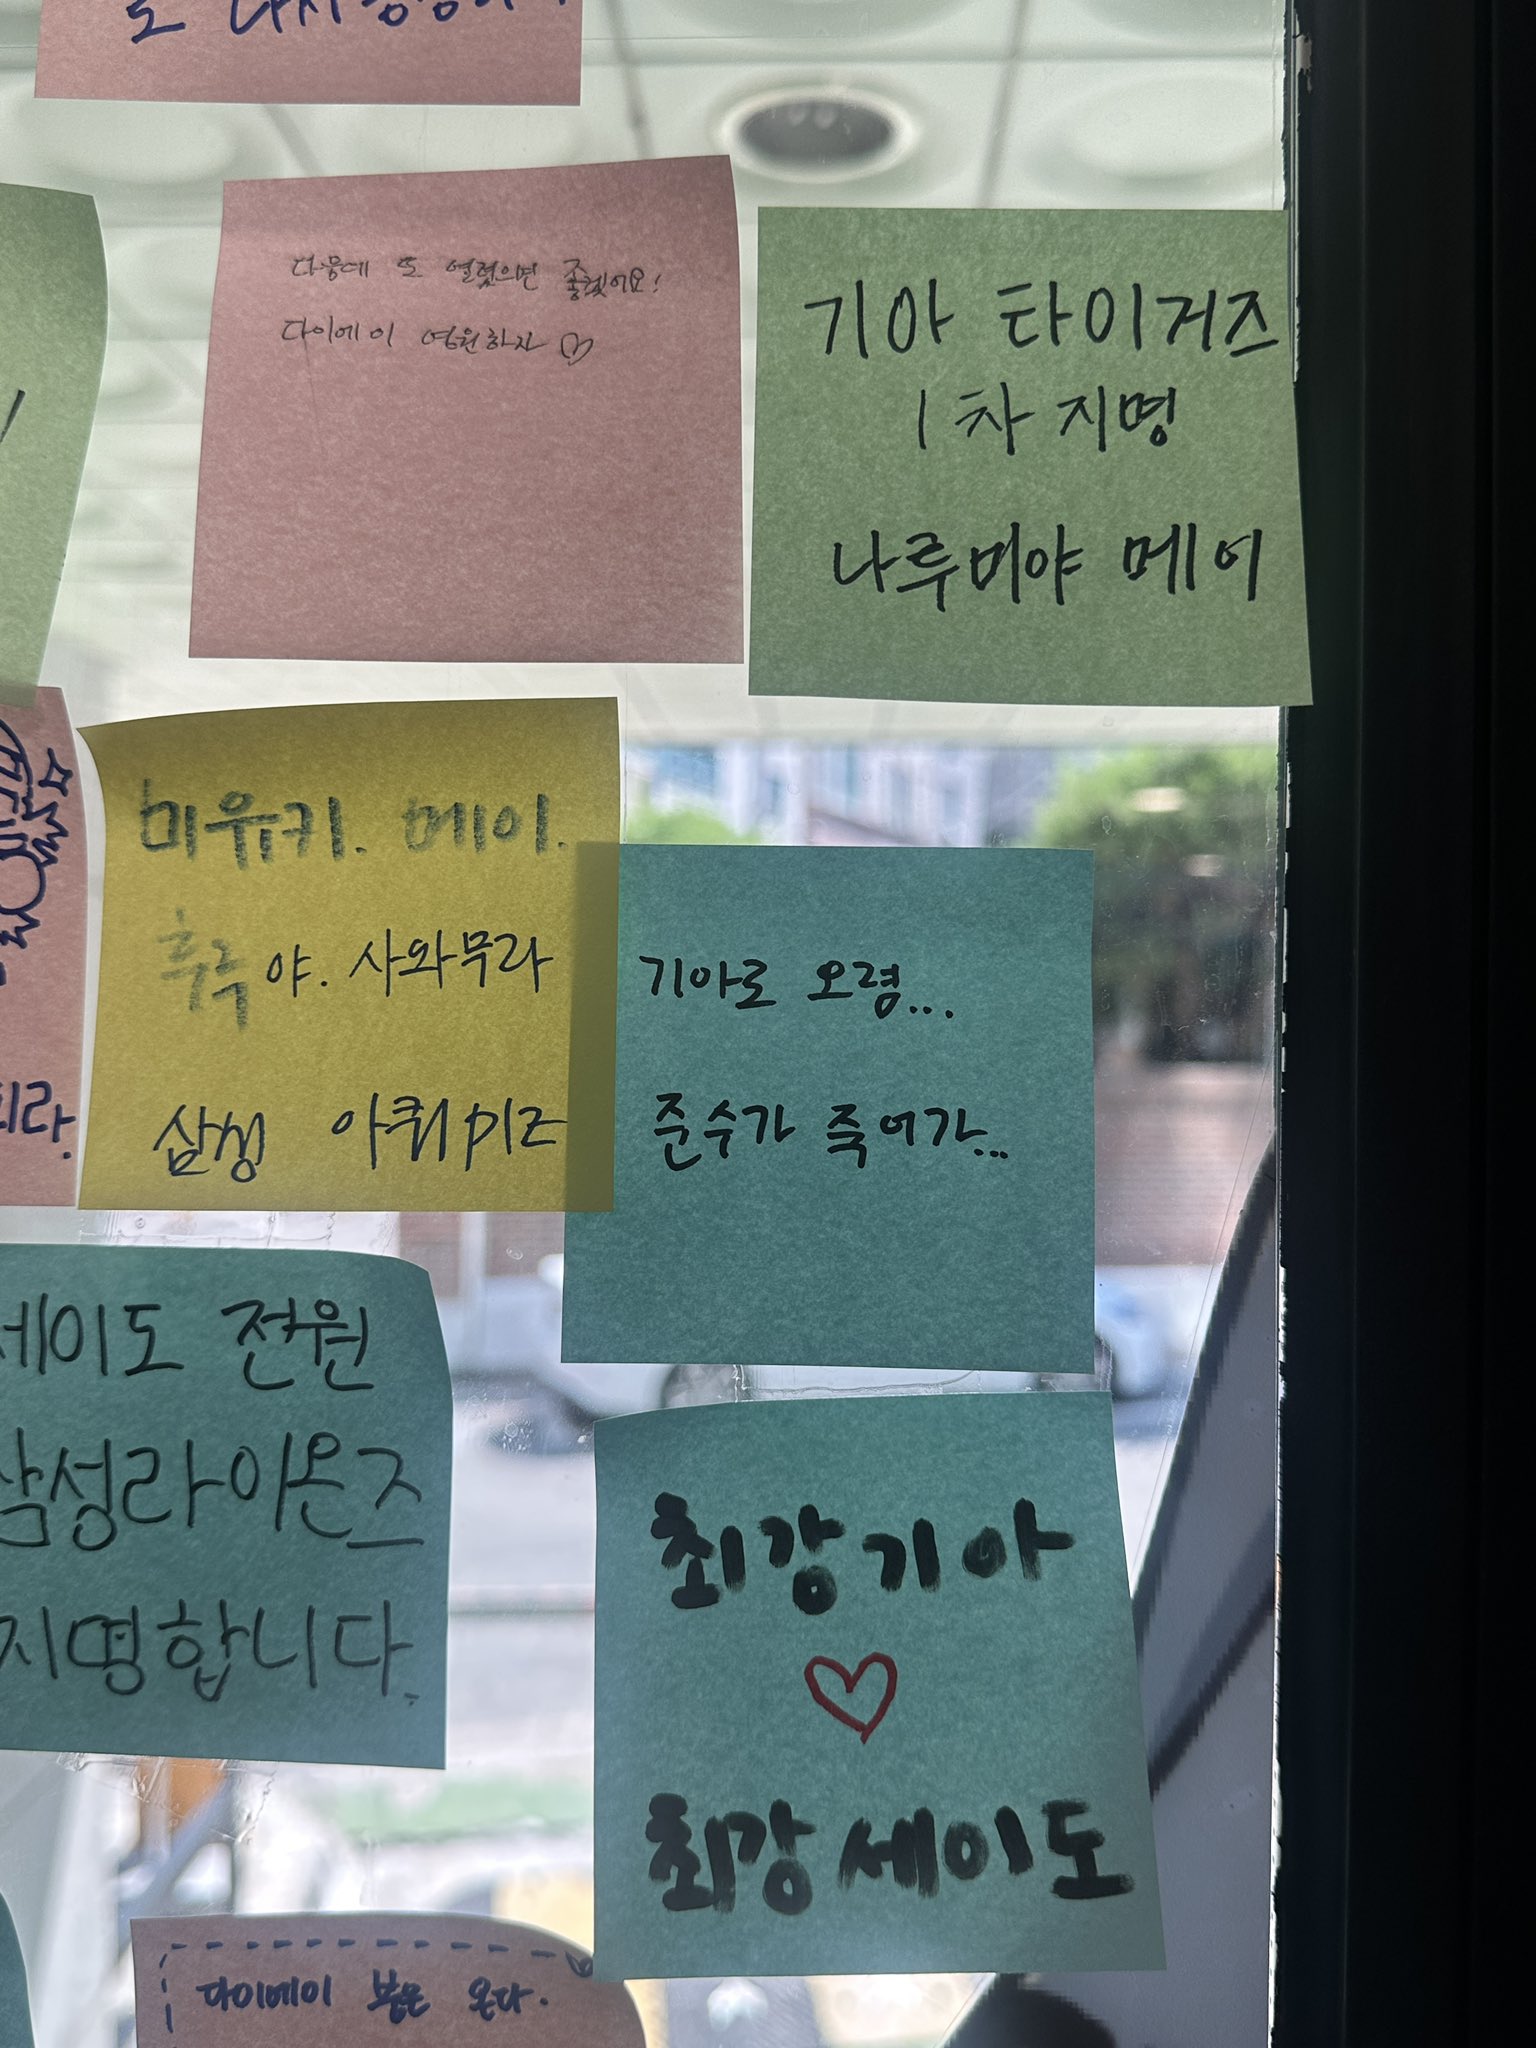 다음에 또 열렸으면 좋겠어요!
다이에이 영원하자 ♡
기아 타이거즈
1차 지명
나루미야 메이
미유키. 메이.
후루야. 사와무라
삼성 아퀴 피즈
기아로 오렴...
준수가 죽어가...
세이도 전원
삼성라이온즈
지명합니다.
최강기아
♡
최강세이도
다이에이 붐은 온다.